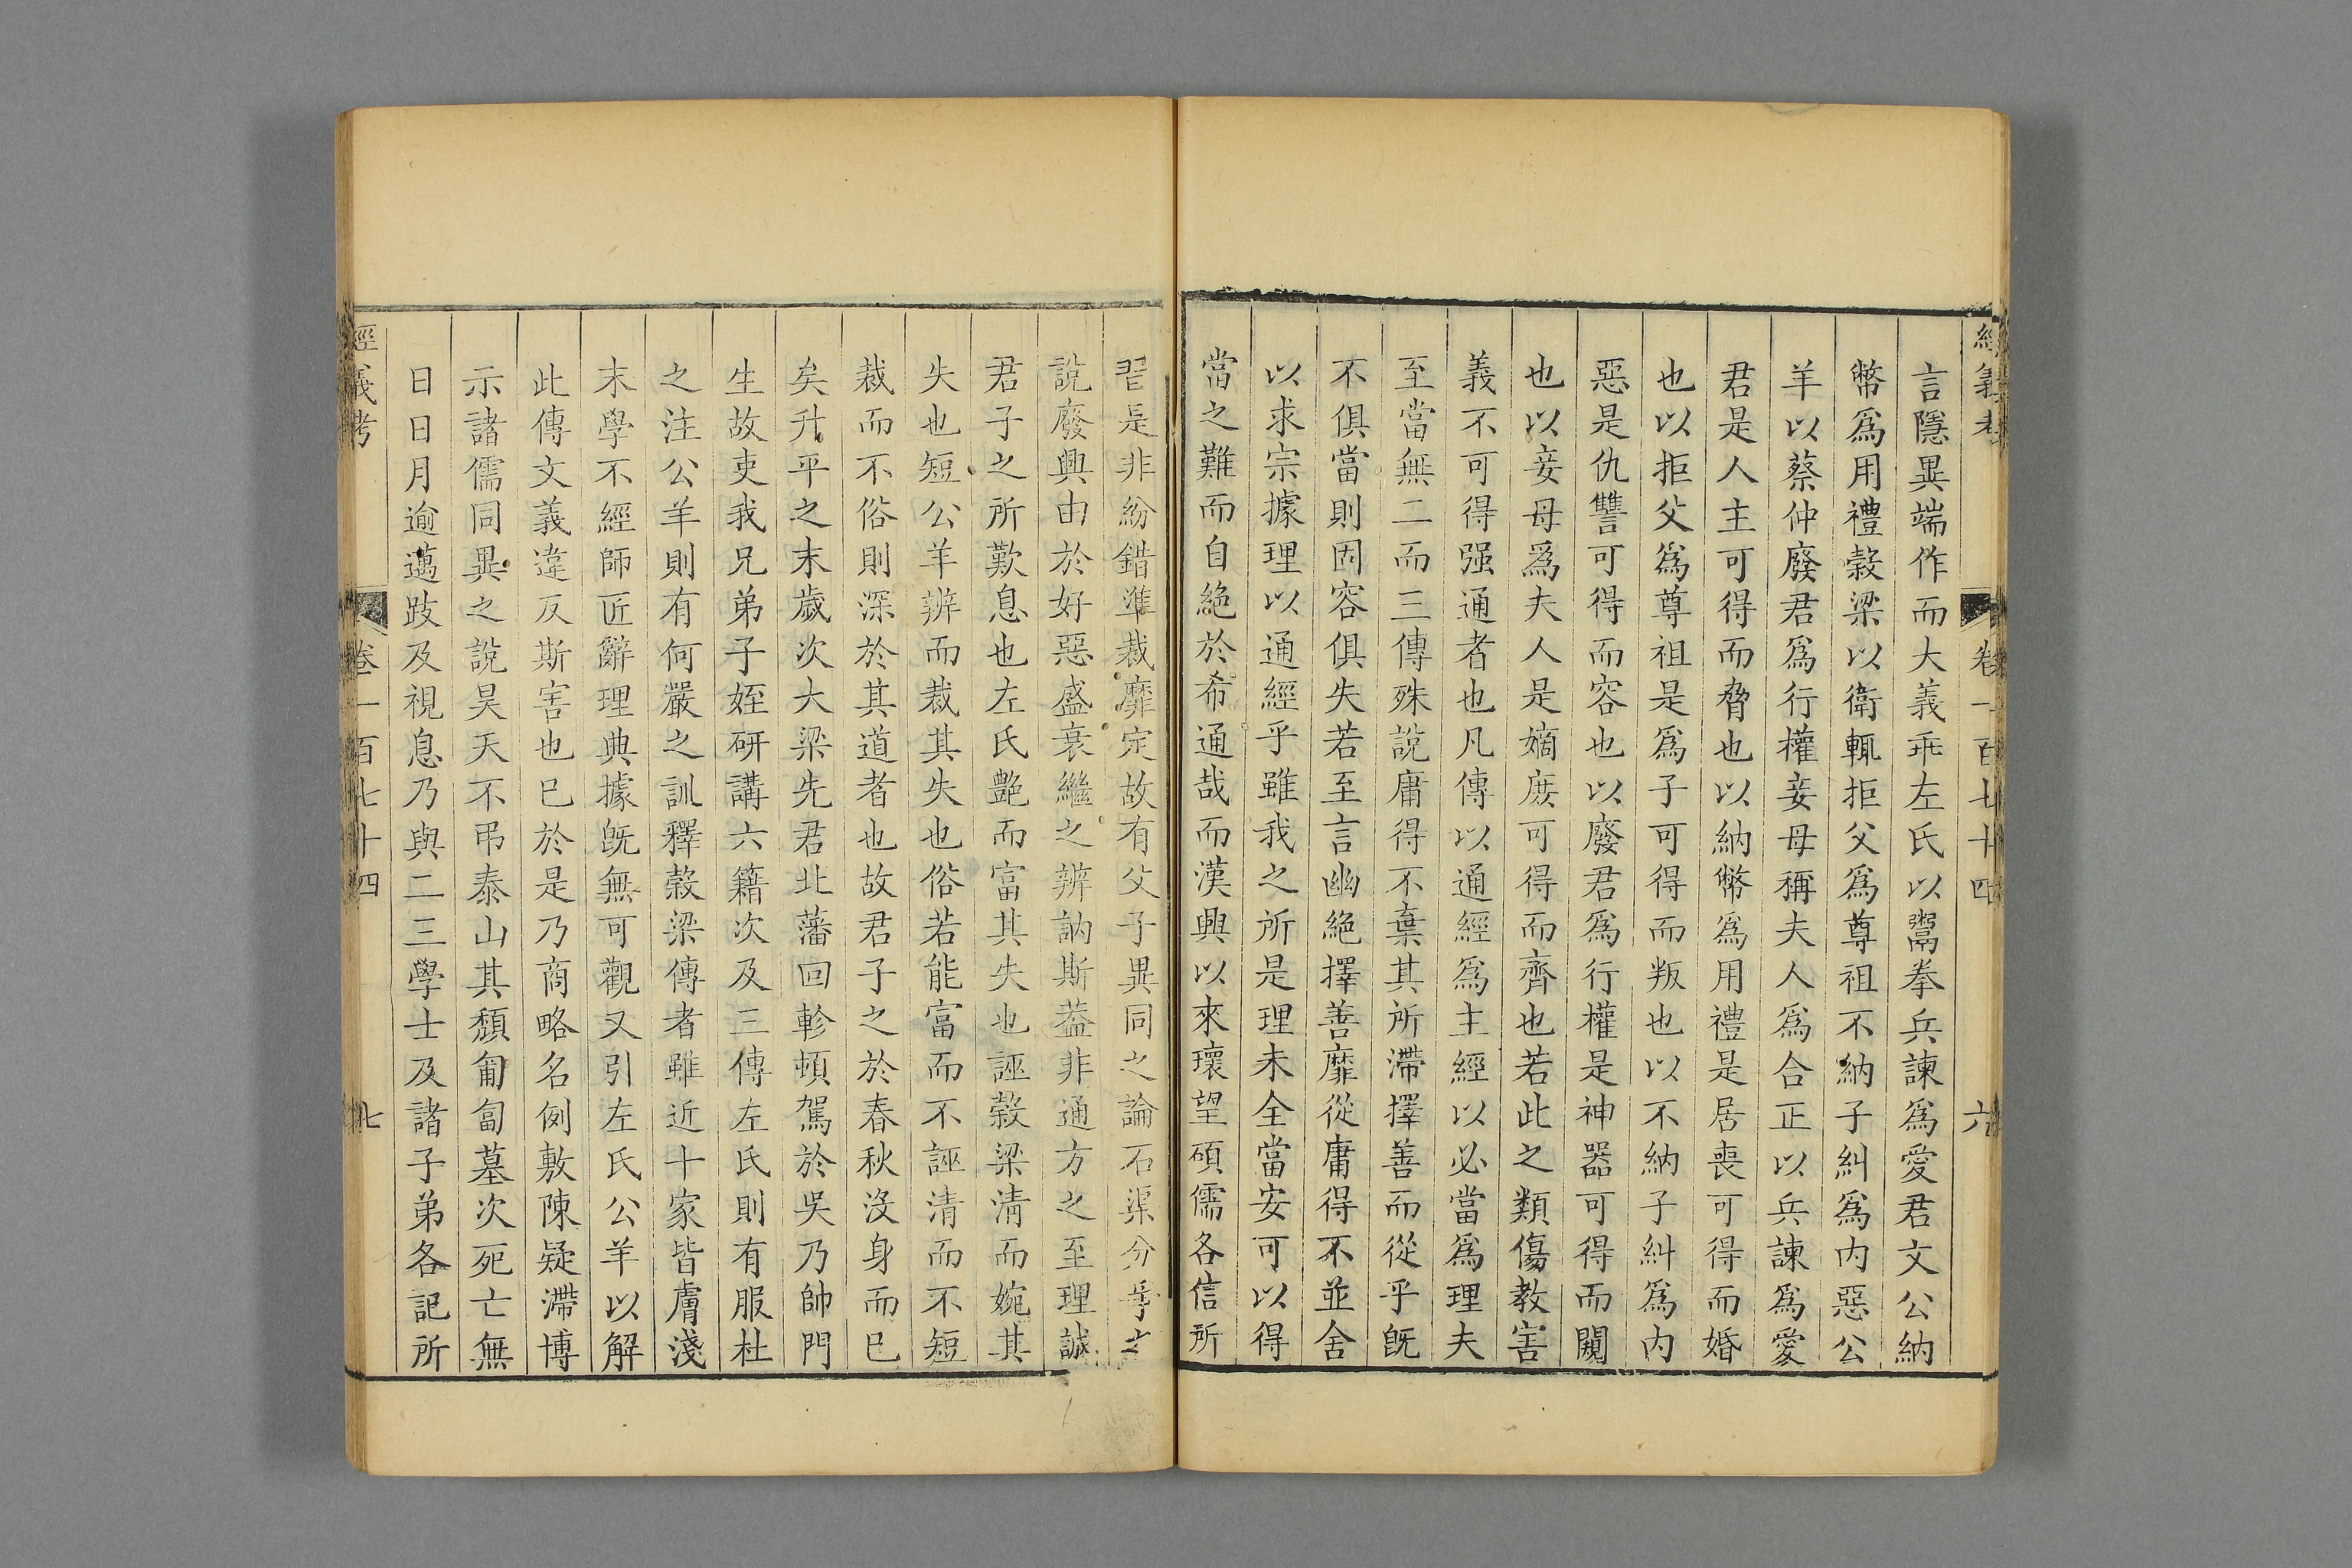 經義考
卷一百七十四
六
言隱異端作而大義乖左氏以鬻拳兵諫爲愛君文公納
幣爲用禮榖梁以衛輒拒父爲尊祖不納子糾爲内惡公
羊以蔡仲廢君爲行權妾母稱夫人爲合正以兵諫爲愛
君是人主可得而脅也以納幣爲用禮是居喪可得而婚
也以拒父爲尊祖是爲子可得而叛也以不納子糾爲内
惡是仇讐可得而容也以廢君爲行權是神器可得而闚
也以妾母爲夫人是嫡庶可得而齊也若此之類傷教害
義不可得强通者也凡傳以通經爲主經以必當爲理夫
至當無二而三傳殊說庸得不棄其所滯擇善而從乎旣
不俱當則固容俱失若至言幽絶擇善靡從庸得不並舍
以求宗據理以通經乎雖我之所是理未全當安可以得
當之難而自絶於希通哉而漢興以來瓌望碩儒各信所
習是非紛錯準裁靡定故有父子異同之論石渠分爭之
說廢興由於好惡盛衰繼之辨訥斯葢非通方之至理誠
君子之所歎息也左氏艷而富其失也誣榖梁清而婉其
失也短公羊辨而裁其失也俗若能富而不誣清而不短
裁而不俗則深於其道者也故君子之於春秋没身而已
矣升平之末歲次大梁先君北藩回軫頓駕於吳乃帥門
生故吏我兄弟子姪研講六籍次及三傳左氏則有服杜
之注公羊則有何嚴之訓釋榖梁傳者雖近十家皆膚淺
末學不經師匠辭理典據旣無可觀又引左氏公羊以解
此傳文義違反斯害也已於是乃商略名例敷陳疑滯博
示諸儒同異之說昊天不弔泰山其頹匍匐墓次死亡無
日日月逾邁跂及視息乃與二三學士及諸子弟各記所
經義考
卷一百七十四
七